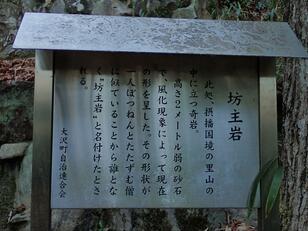 坊主岩
此処、摂播国境の里山の
中に立つ奇岩。
高さ2メートル弱の砂石
で、風化現象によって現在
の形を呈した。その形状が
一人ぽつねんとたたずむ僧
に似ていることから誰とな
く〝坊主岩〟と名付けたとさ
れる。
大沢町自治連合会